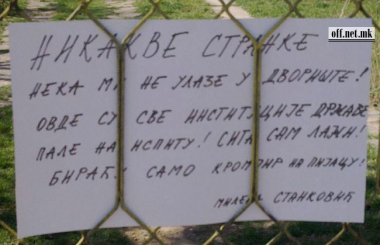 off.net.mk
НИКАКВЕ СТРАНКЕ
НЕКА МИ НЕ УЛАЗЕ У ДВОРИШТЕ!
ОВДЕ СУ СВЕ ИНСТИТУЦИЈЕ ДРЖАВЕ
ПАЛЕ НА ИСПИТУ! СИТА САМ ЛАЖИ!
БИРАЋ! САМО КРОМПИР НА ПИЈАЦУ!
СТАНКОВИЋ